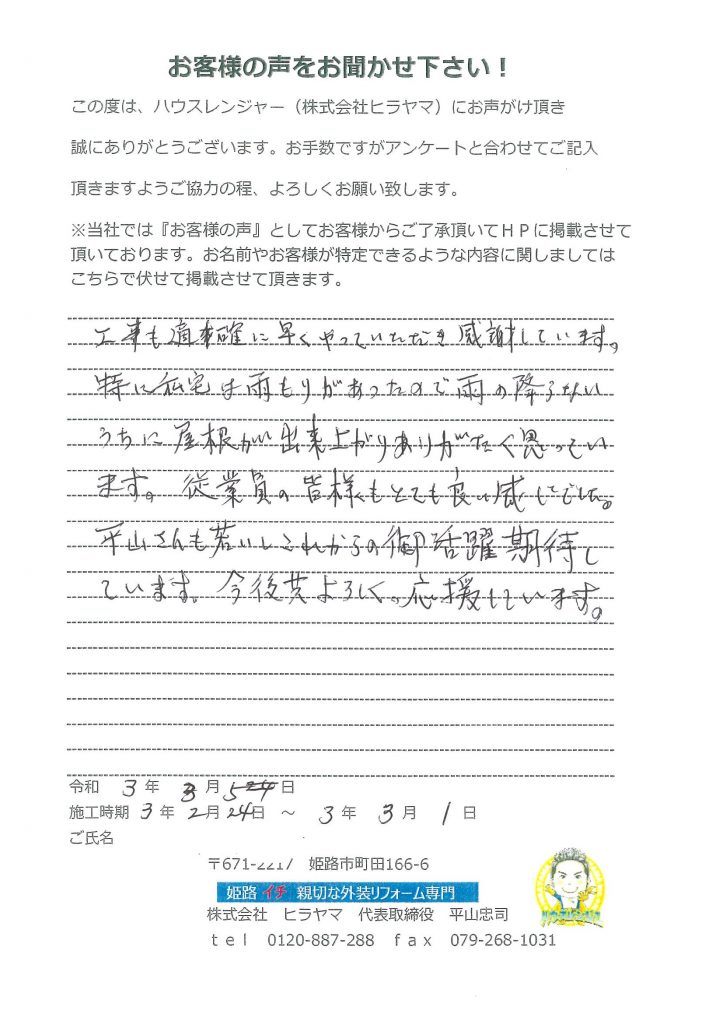 お客様の声をお聞かせ下さい！
この度は、ハウスレンジャー（株式会社ヒラヤマ）にお声がけ頂き
誠にありがとうございます。お手数ですがアンケートと合わせてご記入
頂きますようご協力の程、よろしくお願い致します。
※当社では『お客様の声』としてお客様からご了承頂いてＨＰに掲載させて
頂いております。お名前やお客様が特定できるような内容に関しましては
こちらで伏せて掲載させて頂きます。
工事も適確に早くやっていただき感謝しています。
特に私宅は雨もりがあったので雨の降らない
うちに屋根が出来上がりありがたく思ってい
ます。従業員の皆様もとても良い感じでした。
平山さんも若いしこれからの御活躍期待し
ています。今後共よろしく。応援しています。
令和 3年 3月 5日
施工時期 3年 2月 24日 ～ 3年 3月 1日
ご氏名
〒671-2217 姫路市町田166-6
姫路 イチ 親切な外装リフォーム専門
株式会社 ヒラヤマ 代表取締役 平山忠司
ｔｅｌ 0120-887-288 ｆａｘ 079-268-1031